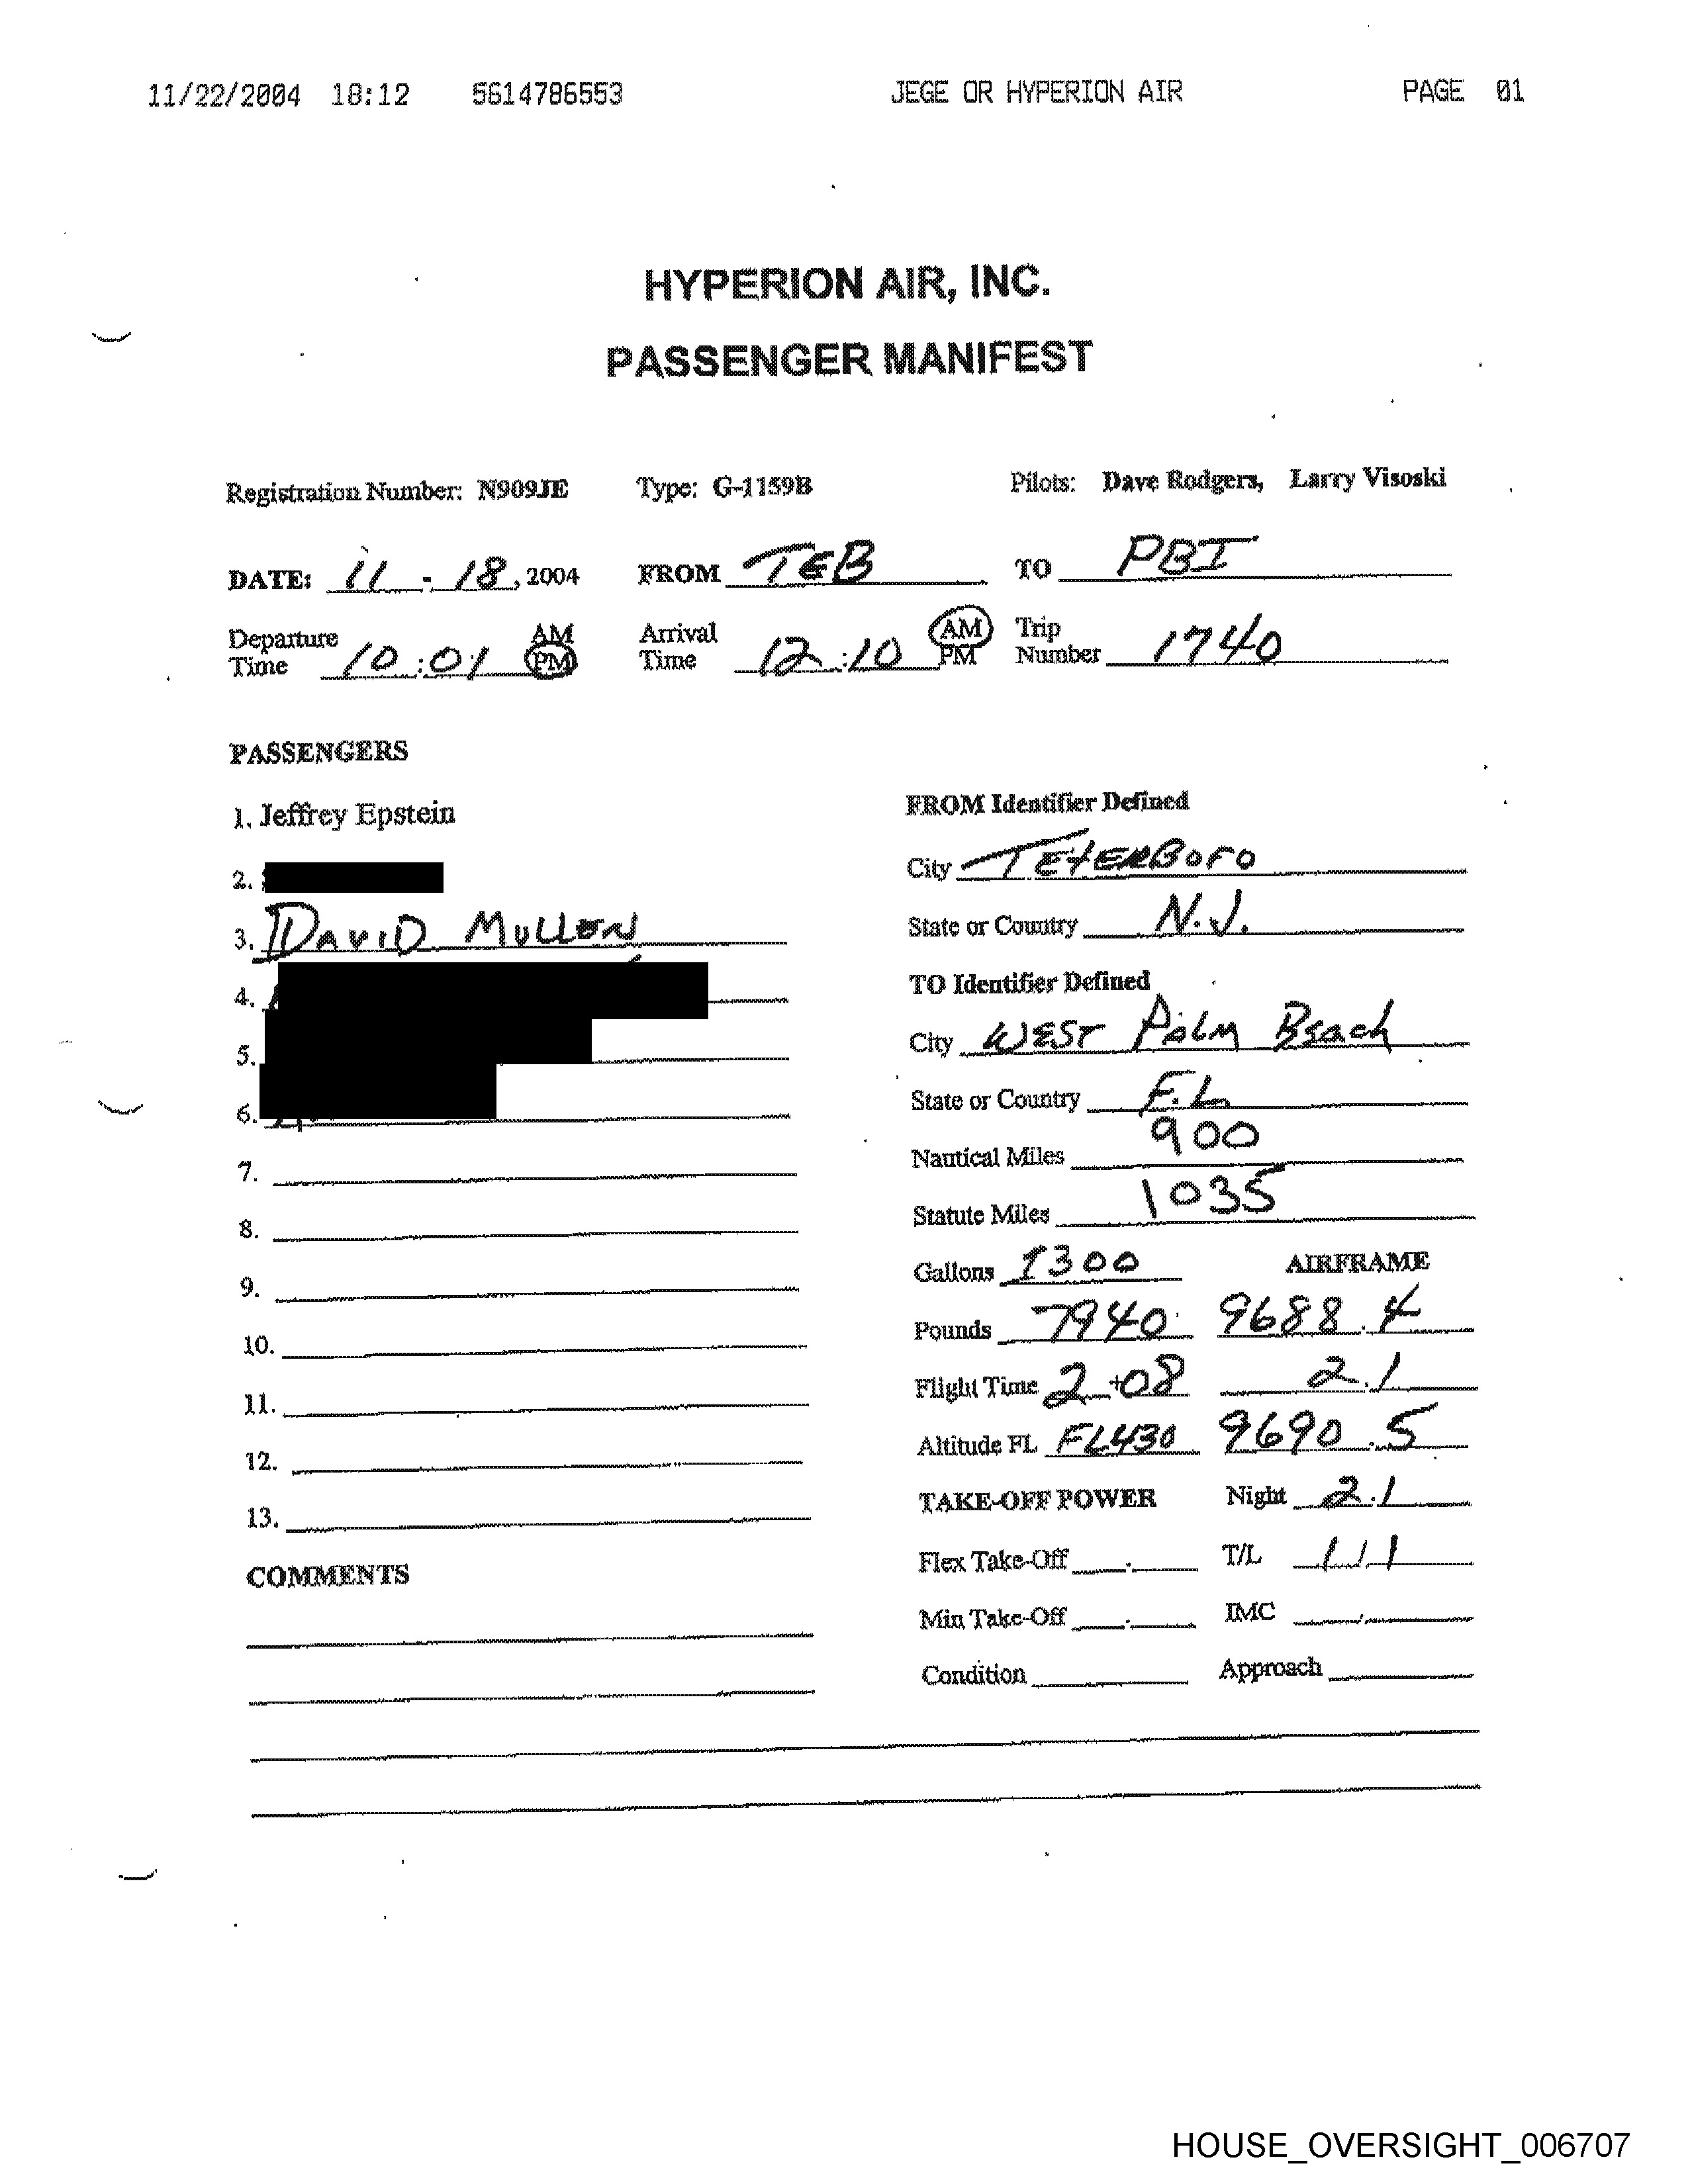 11/22/2004 18:12 5614786553 JEGE OR HYPERION AIR PAGE 01
HYPERION AIR, INC.
PASSENGER MANIFEST
Registration Number: N909JE Type: G-1159B Pilots: Dave Rodgers, Larry Visoski
DATE: 11 - 18, 2004 FROM TEB TO PBI
Departure Time 10:01 AM PM Arrival Time 12:10 AM PM Trip Number 1740
PASSENGERS
1. Jeffrey Epstein
2.
3. DAVID MULLEN
4.
5.
6.
7.
8.
9.
10.
11.
12.
13.
COMMENTS
FROM Identifier Defined
City TETERBORO
State or Country N.J.
TO Identifier Defined
City WEST PALM BEach
State or Country F.L
Nautical Miles 900
Statute Miles 1035
Gallons 1300 AIRFRAME
Pounds 7940 9688.4
Flight Time 2+08 2.1
Altitude FL FL430 9690.5
TAKE-OFF POWER Night 2.1
Flex Take-Off . T/L 1/1
Min Take-Off . IMC .
Condition Approach
HOUSE_OVERSIGHT_006707